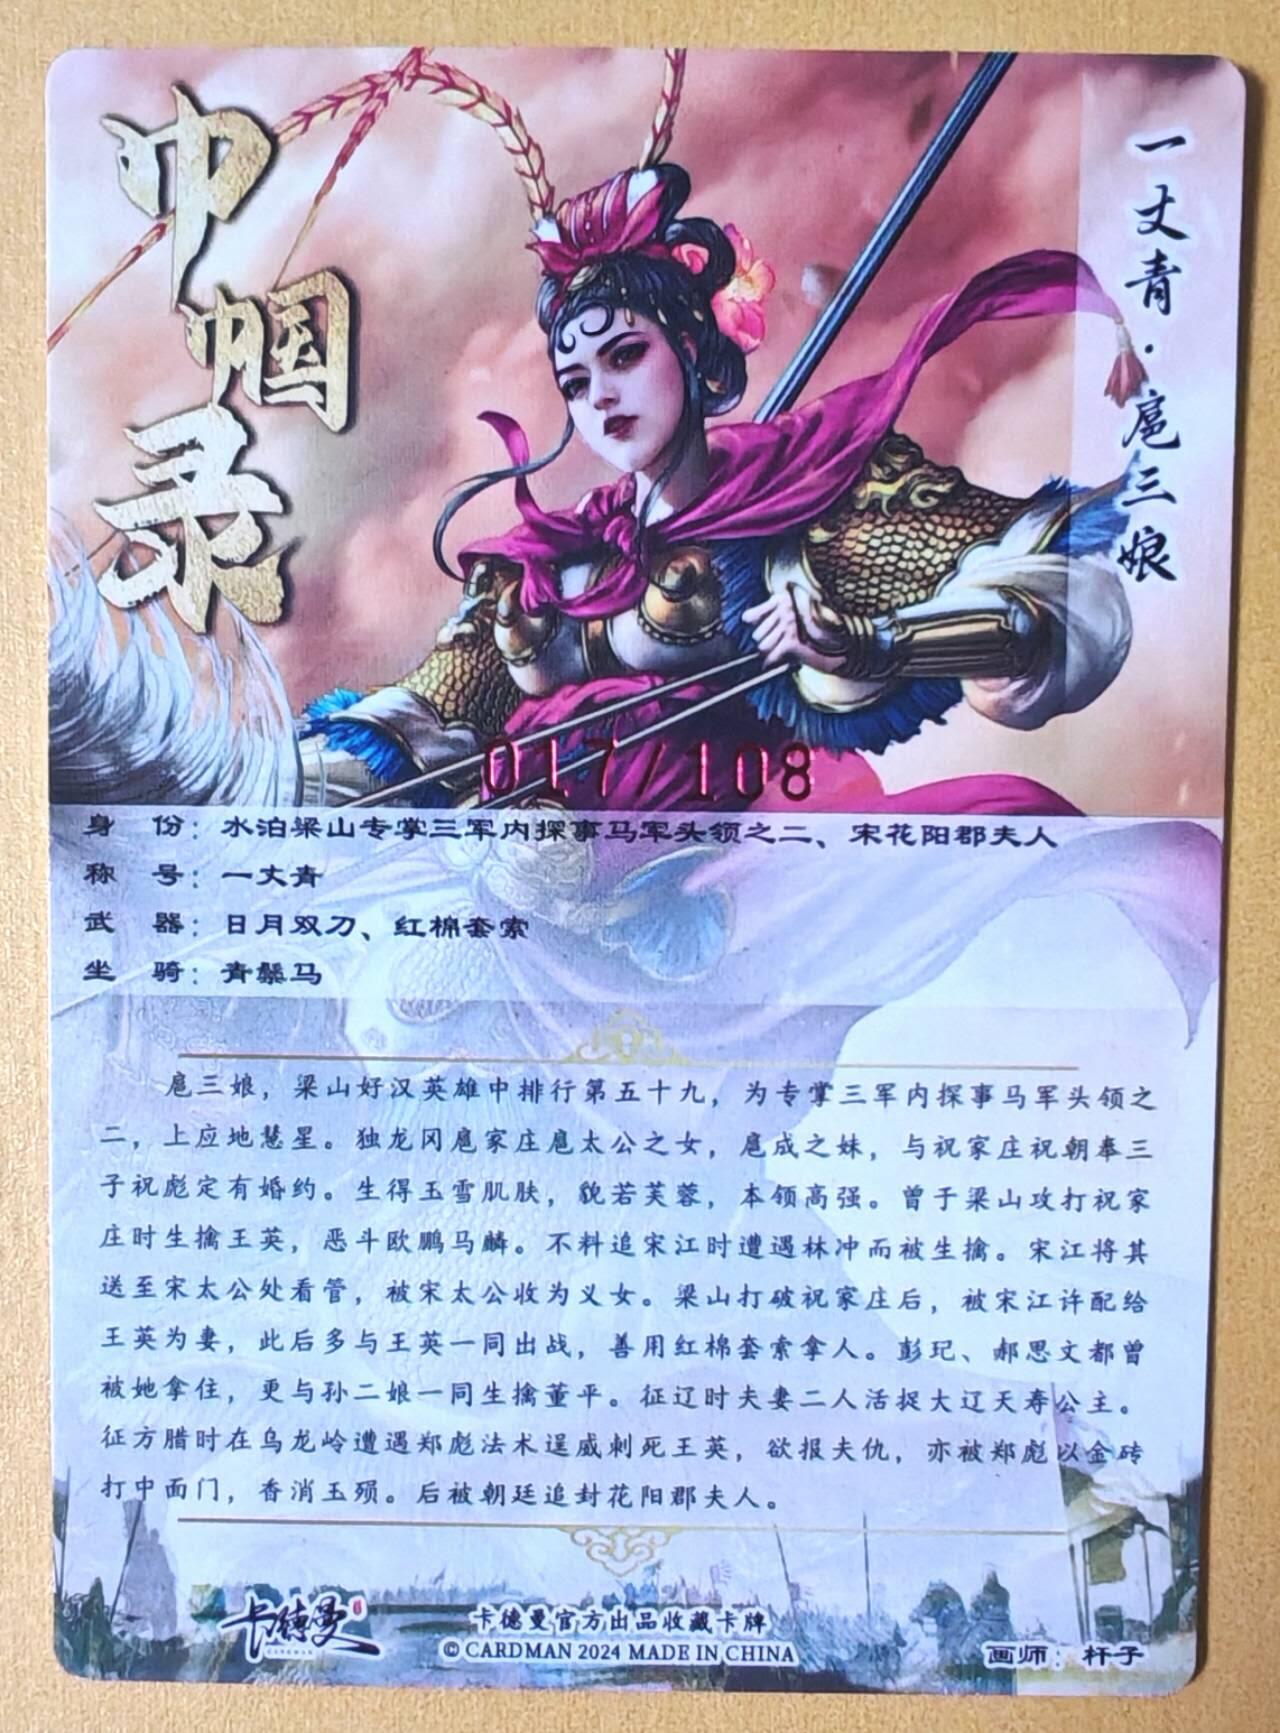 巾帼录
一丈青·扈三娘
017/108
身 份：水泊梁山专掌三军内探事马军头领之二、宋花阳郡夫人
称 号：一丈青
武 器：日月双刀、红棉套索
坐 骑：青鬃马
扈三娘，梁山好汉英雄中排行第五十九，为专掌三军内探事马军头领之
二，上应地慧星。独龙冈扈家庄扈太公之女，扈成之妹，与祝家庄祝朝奉三
子祝彪定有婚约。生得玉雪肌肤，貌若芙蓉，本领高强。曾于梁山攻打祝家
庄时生擒王英，恶斗欧鹏马麟。不料追宋江时遭遇林冲而被生擒。宋江将其
送至宋太公处看管，被宋太公收为义女。梁山打破祝家庄后，被宋江许配给
王英为妻，此后多与王英一同出战，善用红棉套索拿人。彭玘、郝思文都曾
被她拿住，更与孙二娘一同生擒董平。征辽时夫妻二人活捉大辽天寿公主。
征方腊时在乌龙岭遭遇郑彪法术逞威刺死王英，欲报夫仇，亦被郑彪以金砖
打中面门，香消玉殒。后被朝廷追封花阳郡夫人。
卡德曼
CARDMAN
卡德曼官方出品收藏卡牌
© CARDMAN 2024 MADE IN CHINA
画师：杆子